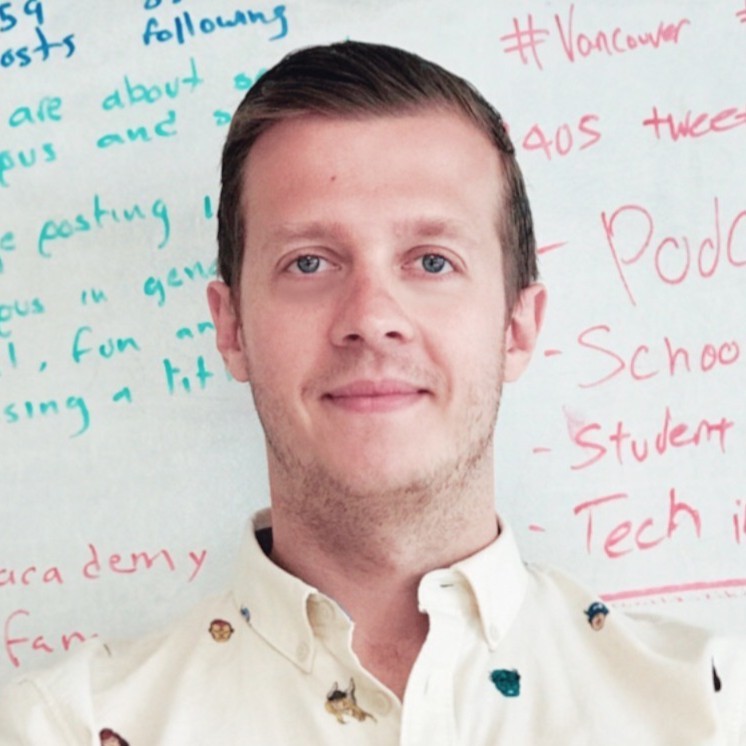 59
osts following
are about
pus and
posting
ous in gen
, fun an
sing a tit
academy
fam
#Vancouver #
405 twee
- Podc
- Schoo
- Student
- Tech i